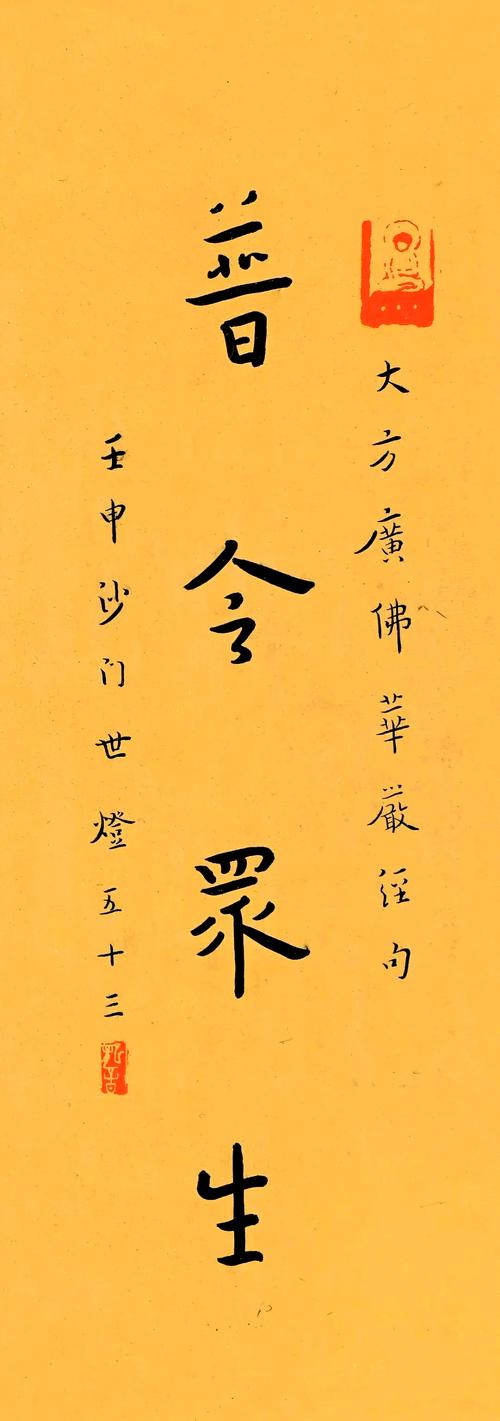 大方廣佛華嚴經句
普令眾生
壬申沙门世燈五十三